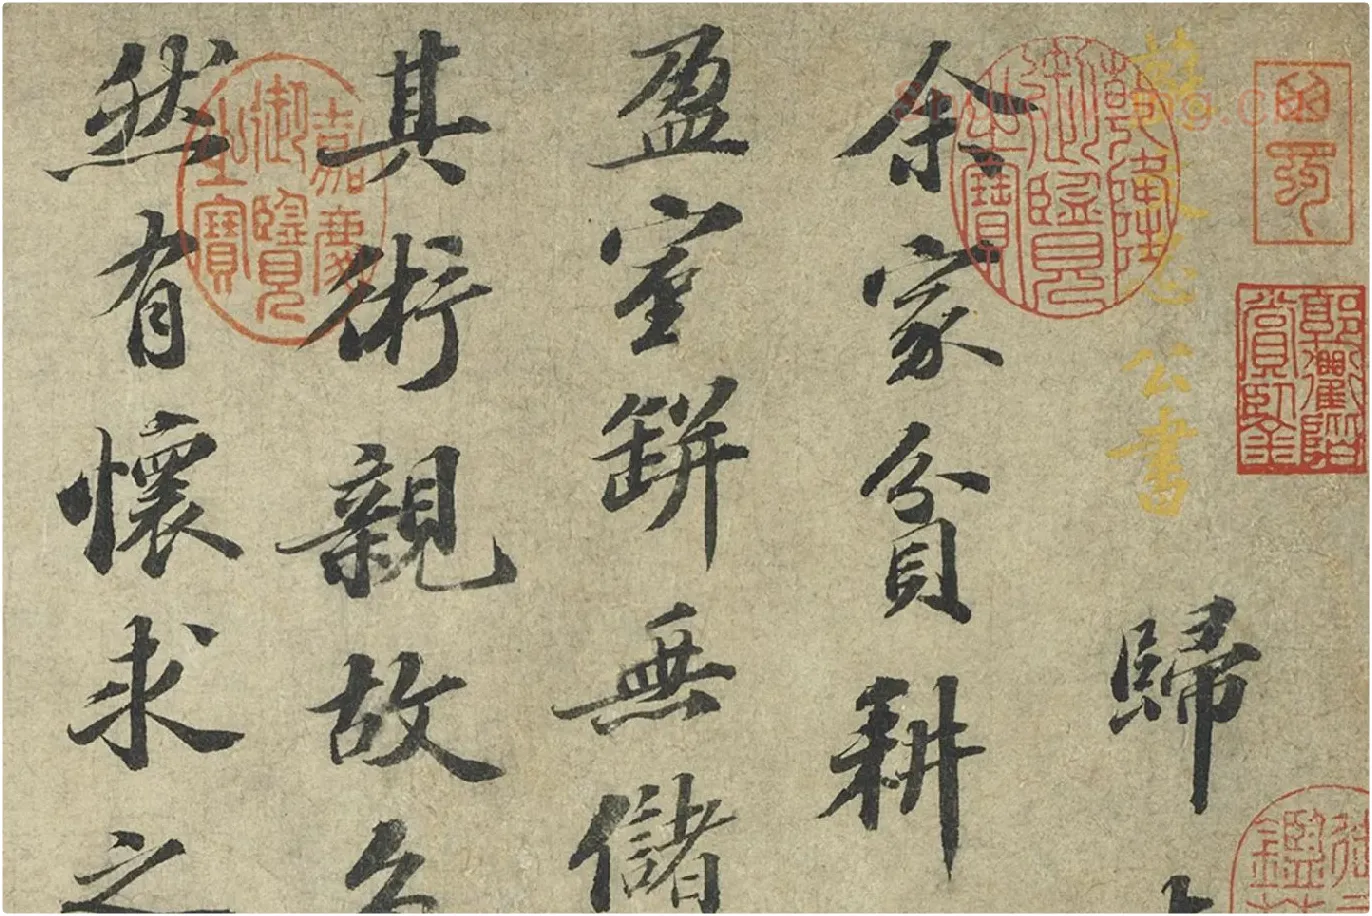 蘇文忠公書
歸
余家貧耕
乾隆御覽之寶
盈室缾無儲
其術親故多
嘉慶御覽之寶
然有懷求之